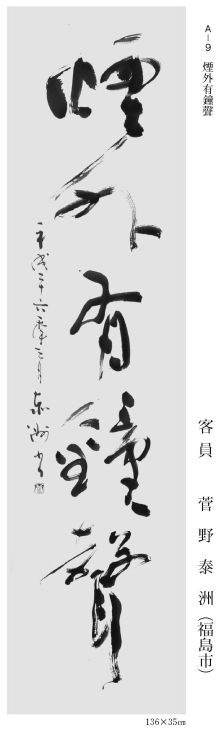 A－9　煙外有鐘聲
客員　菅野泰洲（福島市）
煙外有鐘聲
平成二十六年三月　泰洲書
136×35㎝